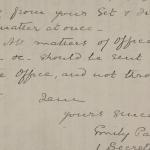 from yours Oct &
matter at once.
All matters of Office
&c. should be sent
e Office, and not thro
I am
yours since
Emily Pa